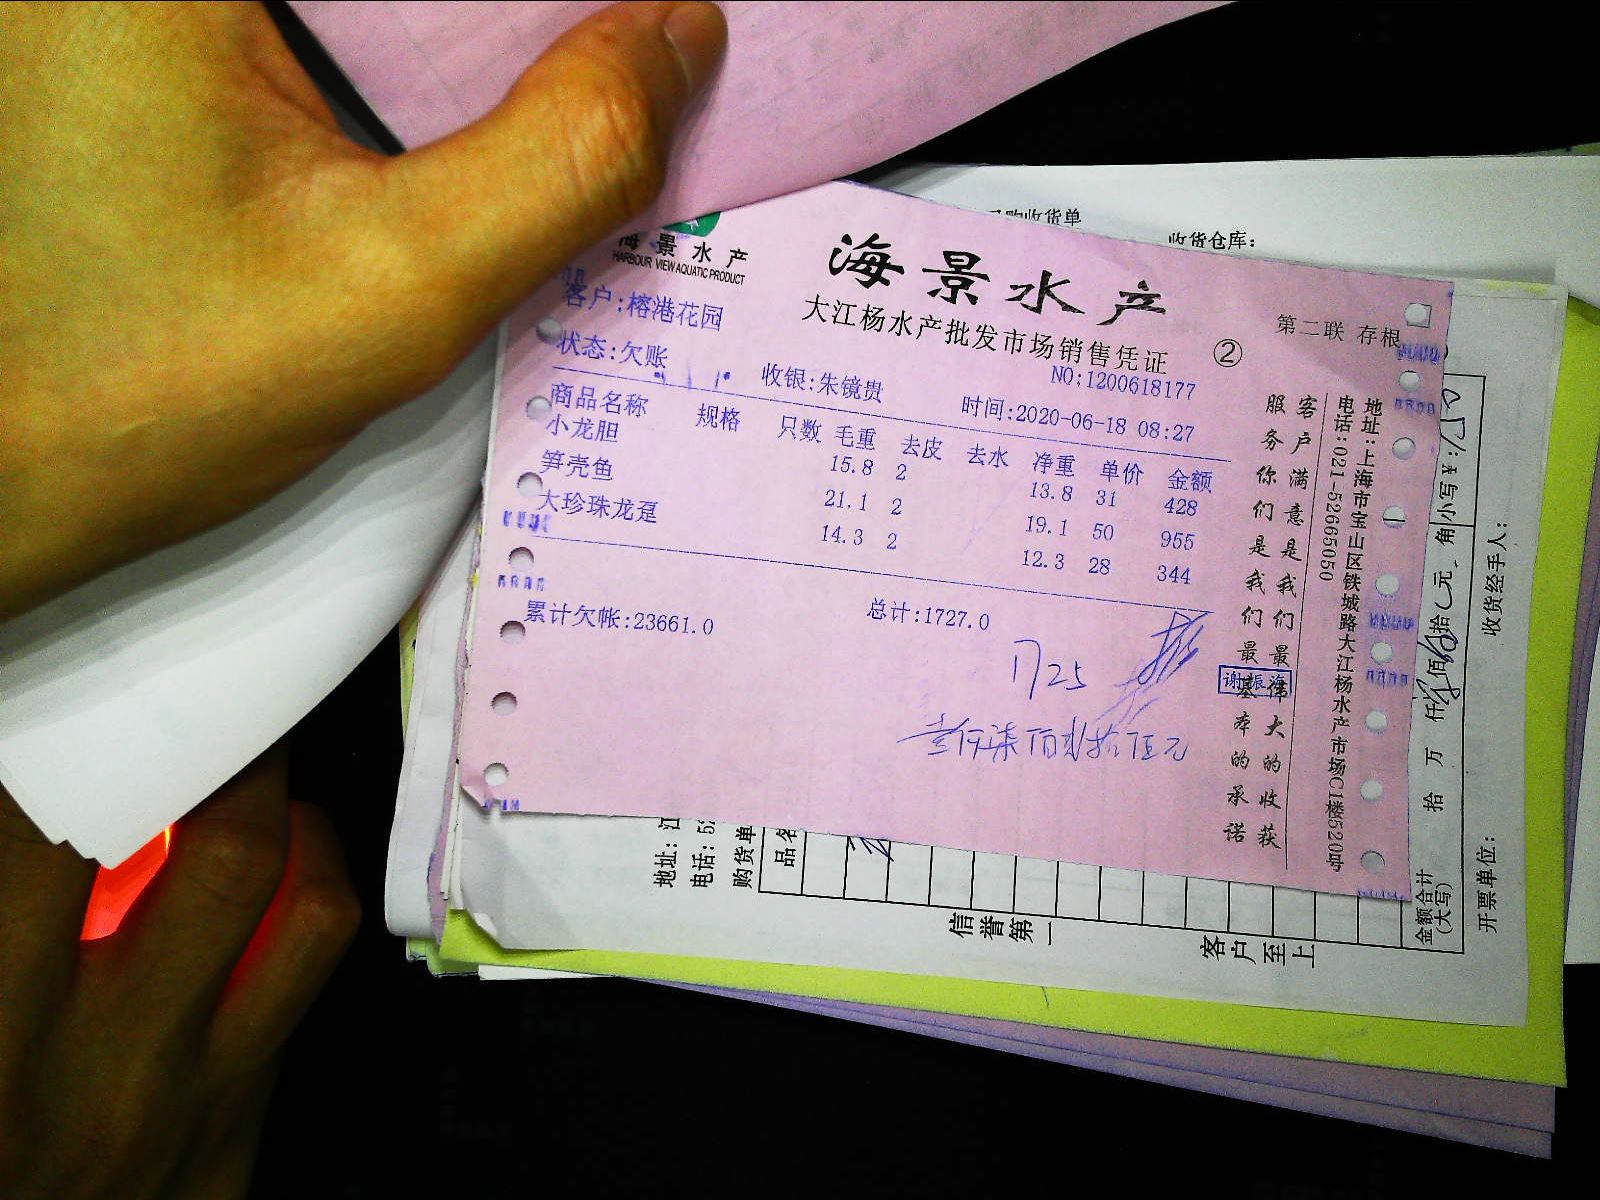 购收货单
收货仓库:
海景水产
HARBOUR VIEW AQUATIC PRODUCT
海景水产
大江杨水产批发市场销售凭证
②
第二联 存根
NO:1200618177
客户:榕港花园
状态:欠账
收银:朱镜贵
时间:2020-06-18 08:27
商品名称 规格 只数 毛重 去皮 去水 净重 单价 金额
小龙胆 15.8 2 13.8 31 428
笋壳鱼 21.1 2 19.1 50 955
大珍珠龙趸 14.3 2 12.3 28 344
累计欠帐:23661.0
总计:1727.0
1725
壹仟柒佰贰拾伍元
谢振海
客户满意是我们最伟大的收获
服务你们是我们最基本的承诺
地址:上海市宝山区铁城路大江杨水产市场C1楼520号
电话:021-52665050
地址:江
电话:52
购货单
品名
信誉第一
客户至上
金额合计
(大写)
拾 万 仟 佰 拾 元 角
小写:¥
开票单位:
收货经手人: